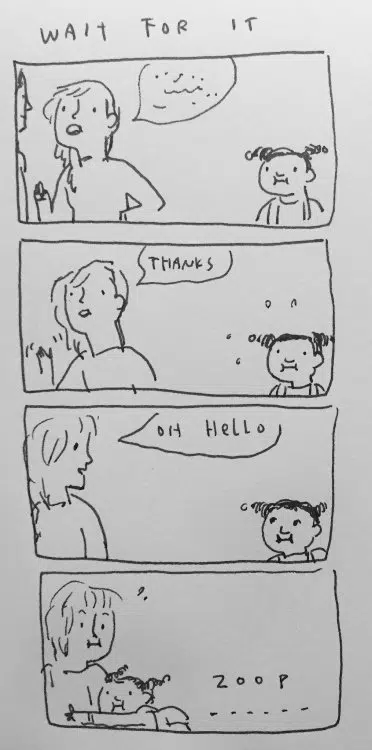 WAIT FOR IT
THANKS
OH HELLO
ZOOP